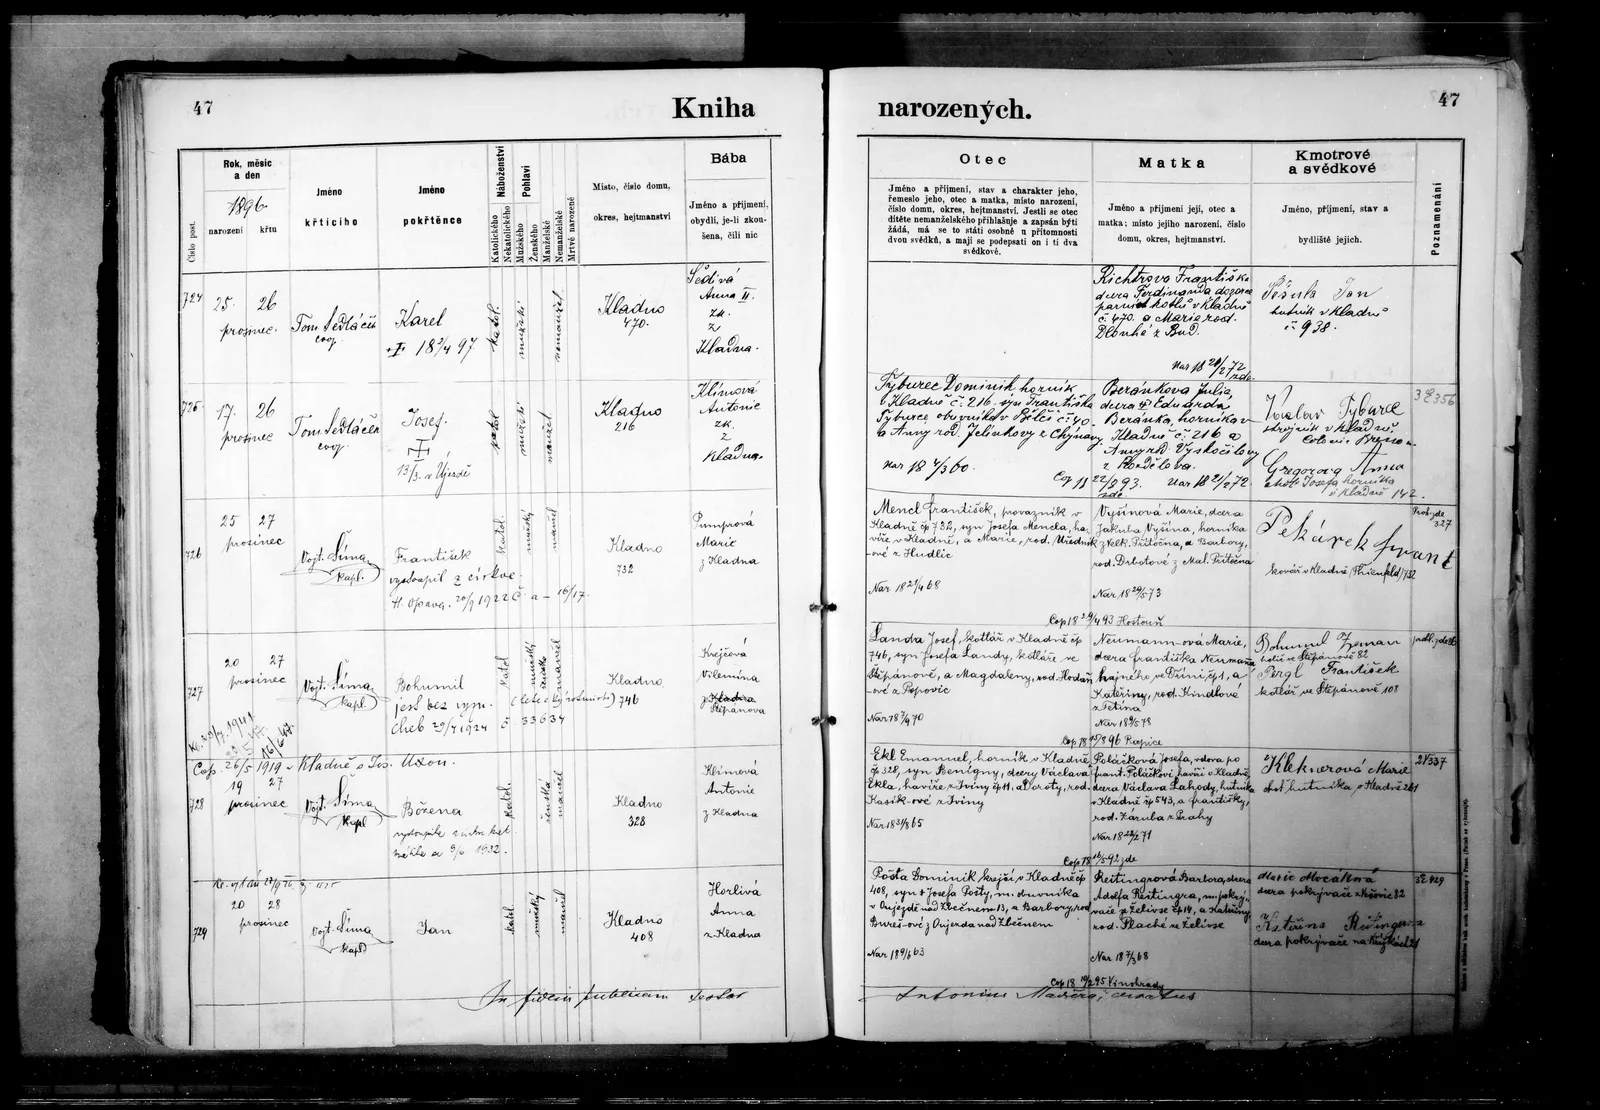 47
Kniha
narozených.
47
Číslo post.
Rok, měsíc
a den
1896
narození
křtu
Jméno
křtícího
Jméno
pokřtěnce
Náboženství
Katolického
Nekatolického
Pohlaví
Mužského
Ženského
Manželské
Nemanželské
Mrtvě narozené
Místo, číslo domu,
okres, hejtmanství
Bába
Jméno a příjmení,
obydlí, je-li zkou-
šena, čili nic
Otec
Jméno a příjmení, stav a charakter jeho,
řemeslo jeho, otec a matka, místo narození,
číslo domu, okres, hejtmanství. Jestli se otec
dítěte nemanželského přihlašuje a zapsán býti
žádá, má se to státi osobně u přítomnosti
dvou svědků, a mají se podepsati on i ti dva
svědkové.
Matka
Jméno a příjmení její, otec a
matka; místo jejího narození, číslo
domu, okres, hejtmanství.
Kmotrové
a svědkové
Jméno, příjmení, stav a
bydliště jejich.
Poznamenání
724
25. 26
prosinec.
Tom. Sedláček
coop.
Karel
+ 18 3/4 97
katol.
mužské
nemanžel.
Kladno
470.
Šedivá
Anna II.
zk.
z
Kladna.
Richtrova Františka
dcera Ferdinanda dozorce
parních kotlů v Kladně
č 470. a Marie rod.
Dlouhé z Bud.
Nar 18 20/2 72
zde.
Jan
hutník v Kladně
č 938.
725
17. 26
prosinec
Tom Sedláček
coop.
Josef.
13/3. v Újezdě
katol
mužské
manžel
Kladno
216
Klímová
Antonie
zk.
z
Kladna.
Tyburec Dominik horník
v Kladně č. 216. syn Františka
Tyburce obuvníka v Bělči č 40.
a Anny rod. Jelínkovy z Chýňavy
Nar 18 4/3 60.
Cop 18 22/2 93.
zde
Beránkova Julia,
dcera Eduarda
Beránka, horníka v
Kladně č. 216 a
Anny rod. Vyskočilovy
Nar 18 21/2 72.
Václav Tyburec
strojník v Kladně
Gregorova Anna
choť Josefa horníka
v Kladně 142.
356
726
25 27
prosinec
Vojt. Šíma
kapl.
František
vystoupil z církve.
H. Opava. 20/9 1922 Č a – 16/17.
katol.
mužský
manžel
Kladno
732
Pumprová
Marie
z Kladna
Mencl František, provazník v
Kladně čp 732, syn Josefa Mencla, ha-
víře v Kladně, a Marie, rod. Uředník-
ové z Hudlic
Nar 18 27/4 68
Cop 18 29/4 93 Hostouň
Vyšínová Marie, dcera
Jakuba Vyšína, horníka
z Velk. Přítočna, a Barbory,
rod. Drbotové z Mal. Přítočna
Nar 18 29/5 73
Pekárek Frant
kovář v Kladně 732
327
727
20 27
prosinec
Vojt. Šíma
kapl
Bohumil
jest bez vyzn.
Cheb 29/7 1924
čn 33634
Katol
mužský
manžel
Kladno
746
Krejčová
Vilemína
z Kladna
Štěpánova
Landa Josef, kotlář v Kladně čp
746, syn Josefa Landy, kotláře ve
Štěpánově, a Magdaleny, rod. Hodaň
ové z Popovic
Nar 18 7/9 70
Neumann-ová Marie,
dcera Františka Neumanna
hajného ve Dříni, č 1, a
Kateřiny, rod. Kindlové
z Tetína
Bohumil Zeman
holič v Štěpánově 82
Pergl František
kotlář ve Štěpánově 108
Cop. 26/5 1919 v Kladně s Jos.
728
19 27
prosinec
Vojt. Šíma
kapl
Božena
vystoupila z církve kat.
9/6 1932.
Katol
ženská
manžel
Kladno
328
Klímová
Antonie
z Kladna
Ekl Emanuel, horník v Kladně
čp 328, syn Benigny, dcery Václava
Ekla, havíře z Jviny čp 11, a Doroty, rod.
Kasík-ové z Jviny
Nar 18 31/8 65
Cop 18 16/5 92 zde
Poláčková Josefa, vdova po
Frant. Poláčkovi, havíři v Kladně,
dcera Václava Lahody, hutníka
v Kladně čp 543, a Františky,
rod. Záruba z Prahy
Nar 18 22/2 71
Kleknerová Marie
choť hutníka v Kladně 261
337
729
20 28
prosinec
Vojt. Šíma
kapl
Jan
katol
mužský
manžel
Kladno
408
Horlivá
Anna
z Kladna
Pošta Dominik, krejčí v Kladně čp
408, syn † Josefa Pošty, m. duvníka
v Oujezdě nad Zbečnem 13, a Barbory, rod
Bureš-ové z Oujezda nad Zbečnem
Nar 18 9/6 63
Cop 18 19/2 95 Vinohrady
Reitingrová Barbora, dcera
Adolfa Reitingra, m. pokrý-
vače z Želivse čp 14, a Kateřiny,
rod. Plaché ze Želivse
Nar 18 7/3 68
Marie Mocáková
dcera pokrývače
Kateřina Reitingrova
dcera pokrývače
429
In fidem publicam testor
Antonius Maděra, curatus